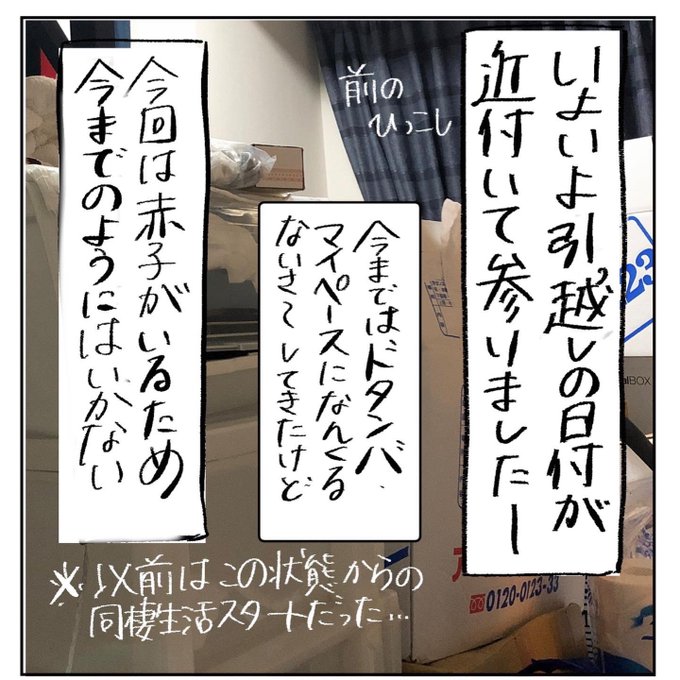 いよいよ引越しの日付が
近付いて参りましたー
前の
ひっこし
今まではドタンバ、
マイペースになんくる
ないさ〜してきたけど
今回は赤子がいるため
今までのようにはいかない
※以前はこの状態からの
同棲生活スタートだった…
23
alBOX
0120-0123-33